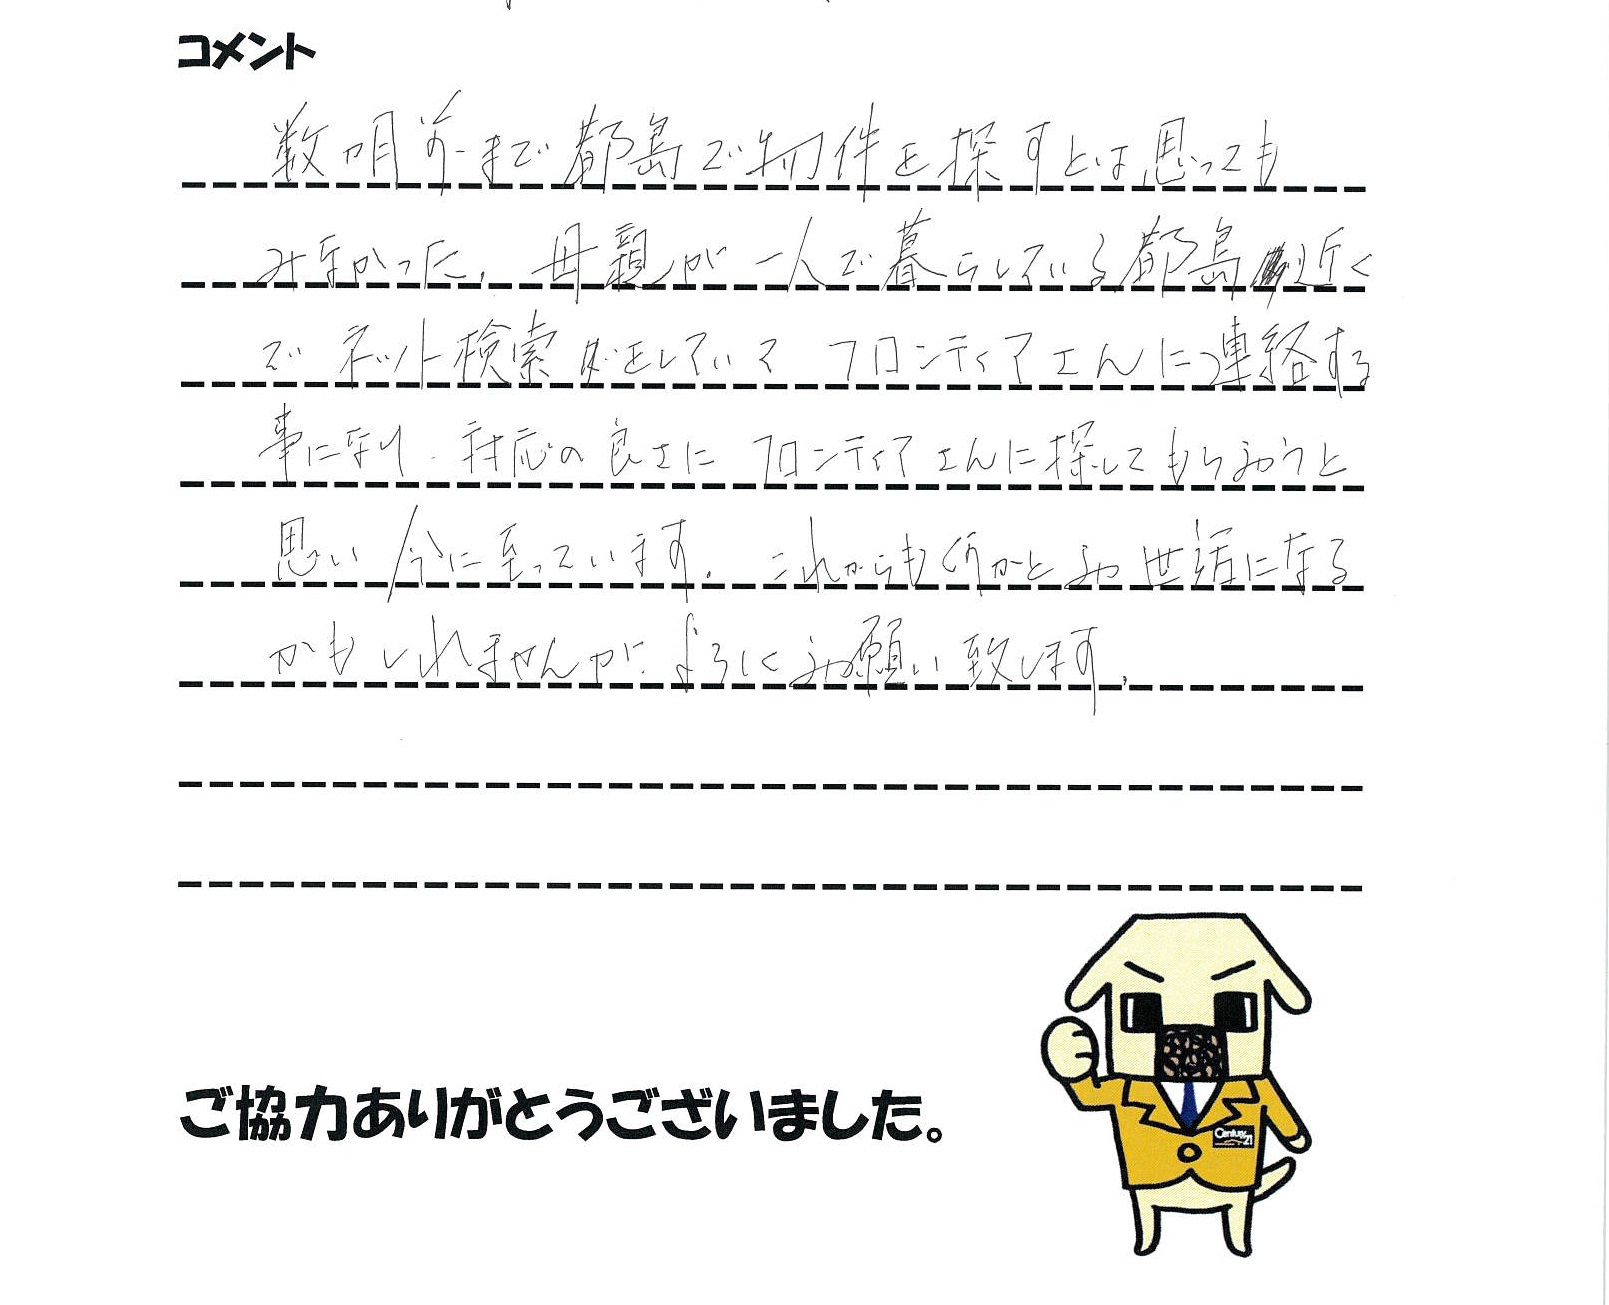 コメント
数カ月前まで都島で物件を探すとは思っても
みなかった、母親が一人で暮らしている都島近く
でネット検索をしていて フロンティアさんに連絡する
事になり、対応の良さに フロンティアさんに探してもらおうと
思い 今に至っています。これからも何かとお世話になる
かもしれませんが、よろしくお願い致します。
ご協力ありがとうございました。
Century 21